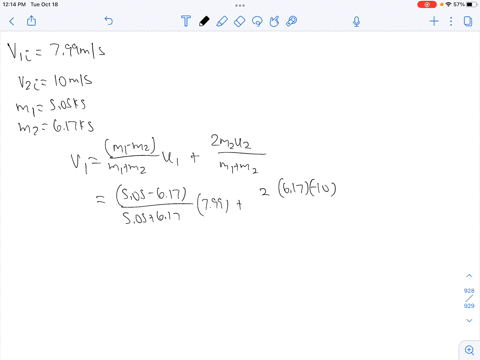 12:14 PM Tue Oct 18
57%
V1i = 7.99m/s
V2i = 10m/s
m1 = 5.05kg
m2 = 6.17kg
V1 = (m1-m2)/(m1+m2) u1 + 2m2u2/(m1+m2)
= (5.05-6.17)/(5.05+6.17) (7.99) + 2 (6.17)(-10)
928
/
929